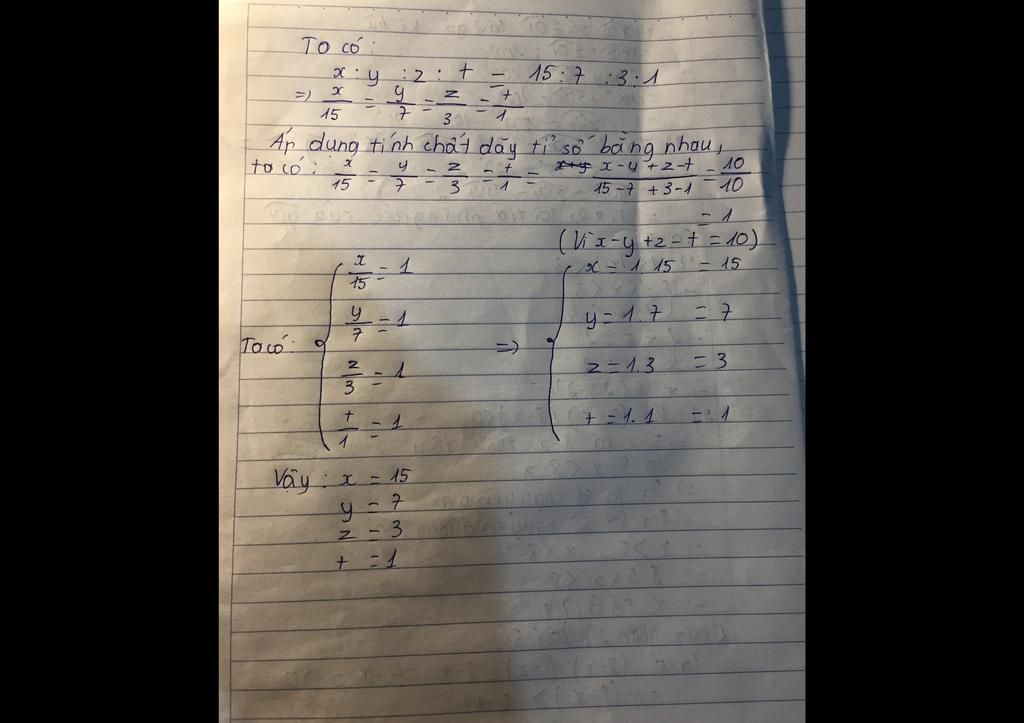 Ta có:
x : y : z : t = 15 : 7 : 3 : 1
=> x/15 = y/7 = z/3 = t/1
Áp dụng tính chất dãy tỉ số bằng nhau,
ta có: x/15 = y/7 = z/3 = t/1 = x-y+z-t/15-7+3-1 = 10/10
= 1
(Vì x-y+z-t = 10)
Ta có: { x/15 = 1 => { x = 1.15 = 15
y/7 = 1 y = 1.7 = 7
z/3 = 1 z = 1.3 = 3
t/1 = 1 t = 1.1 = 1
Vậy: x = 15
y = 7
z = 3
t = 1